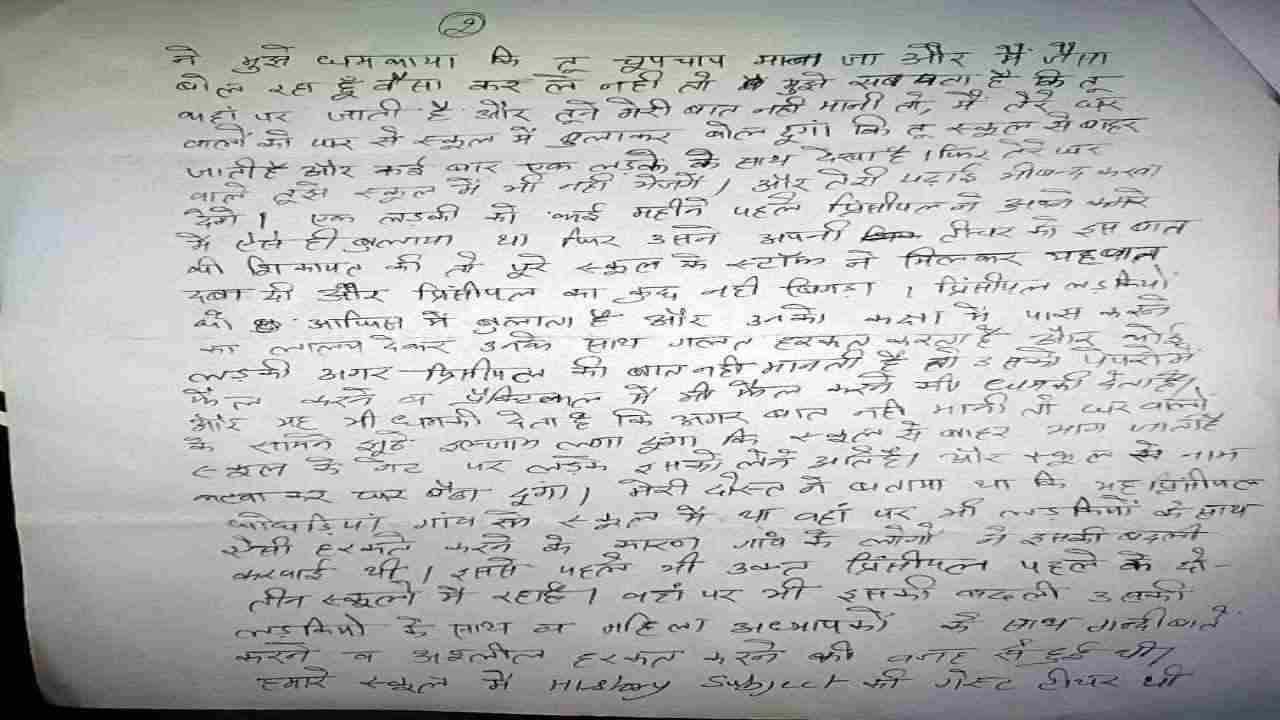 2
ने मुझे धमकाया कि तू चुपचाप मान जा और मैं जैसा
बोल रहा हूँ वैसा कर ले नही तो मुझे सब पता है कि तू
कहां पर जाती है और तूने मेरी बात नही मानी तो, मैं तेरे घर
वालों को घर से स्कूल में बुलाकर बोल दूंगा कि तू स्कूल से बाहर
जाती है और कई बार एक लड़के के साथ देखा है। फिर तेरे घर
वाले तुझे स्कूल में भी नही भेजगें। और तेरी पढ़ाई भी बन्द करवा
देगें। एक लड़की को कई महीने पहले प्रिंसीपल ने अपने कमरे
में ऐसे ही बुलाया था फिर उसने अपनी टीचर को इस बात
की शिकायत की तो पूरे स्कूल के स्टॉफ ने मिलकर यह बात
दबा दी और प्रिंसीपल का कुछ नही बिगड़ा। प्रिंसीपल लड़कियों
को आफिस में बुलाता है और उनको कक्षा में पास करने
का लालच देकर उनके साथ गलत हरकत करता है और कोई
लड़की अगर प्रिंसीपल की बात नही मानती है तो उसको पेपरों में
फैल करने व प्रैक्टिकल में भी फैल करने की धमकी देता है।
और यह भी धमकी देता है कि अगर बात नही मानी तो घर वालो
के सामने झूठे इल्जाम लगा दूंगा कि स्कूल से बाहर भाग जाती है
स्कूल के गेट पर लड़के इसको लेने आते है। और स्कूल से नाम
कटवा कर घर बैठा दूंगा। मेरी दोस्त ने बताया था कि यह प्रिंसीपल
गांव के स्कूल में था वहां पर भी लड़कियों के साथ
ऐसी हरकते करने के कारण गांव के लोगो ने इसकी बदली
करवाई थी। इससे पहले भी उक्त प्रिंसीपल पहले के दो-
तीन स्कूलो में रहा है। वहां पर भी इसकी बदली उसकी
लड़कियो के साथ व महिला अध्यापकों के साथ गन्दी बाते
करने व अश्लील हरकत करने की वजह से हुई थी।
हमारे स्कूल में History Subject की गेस्ट टीचर थी